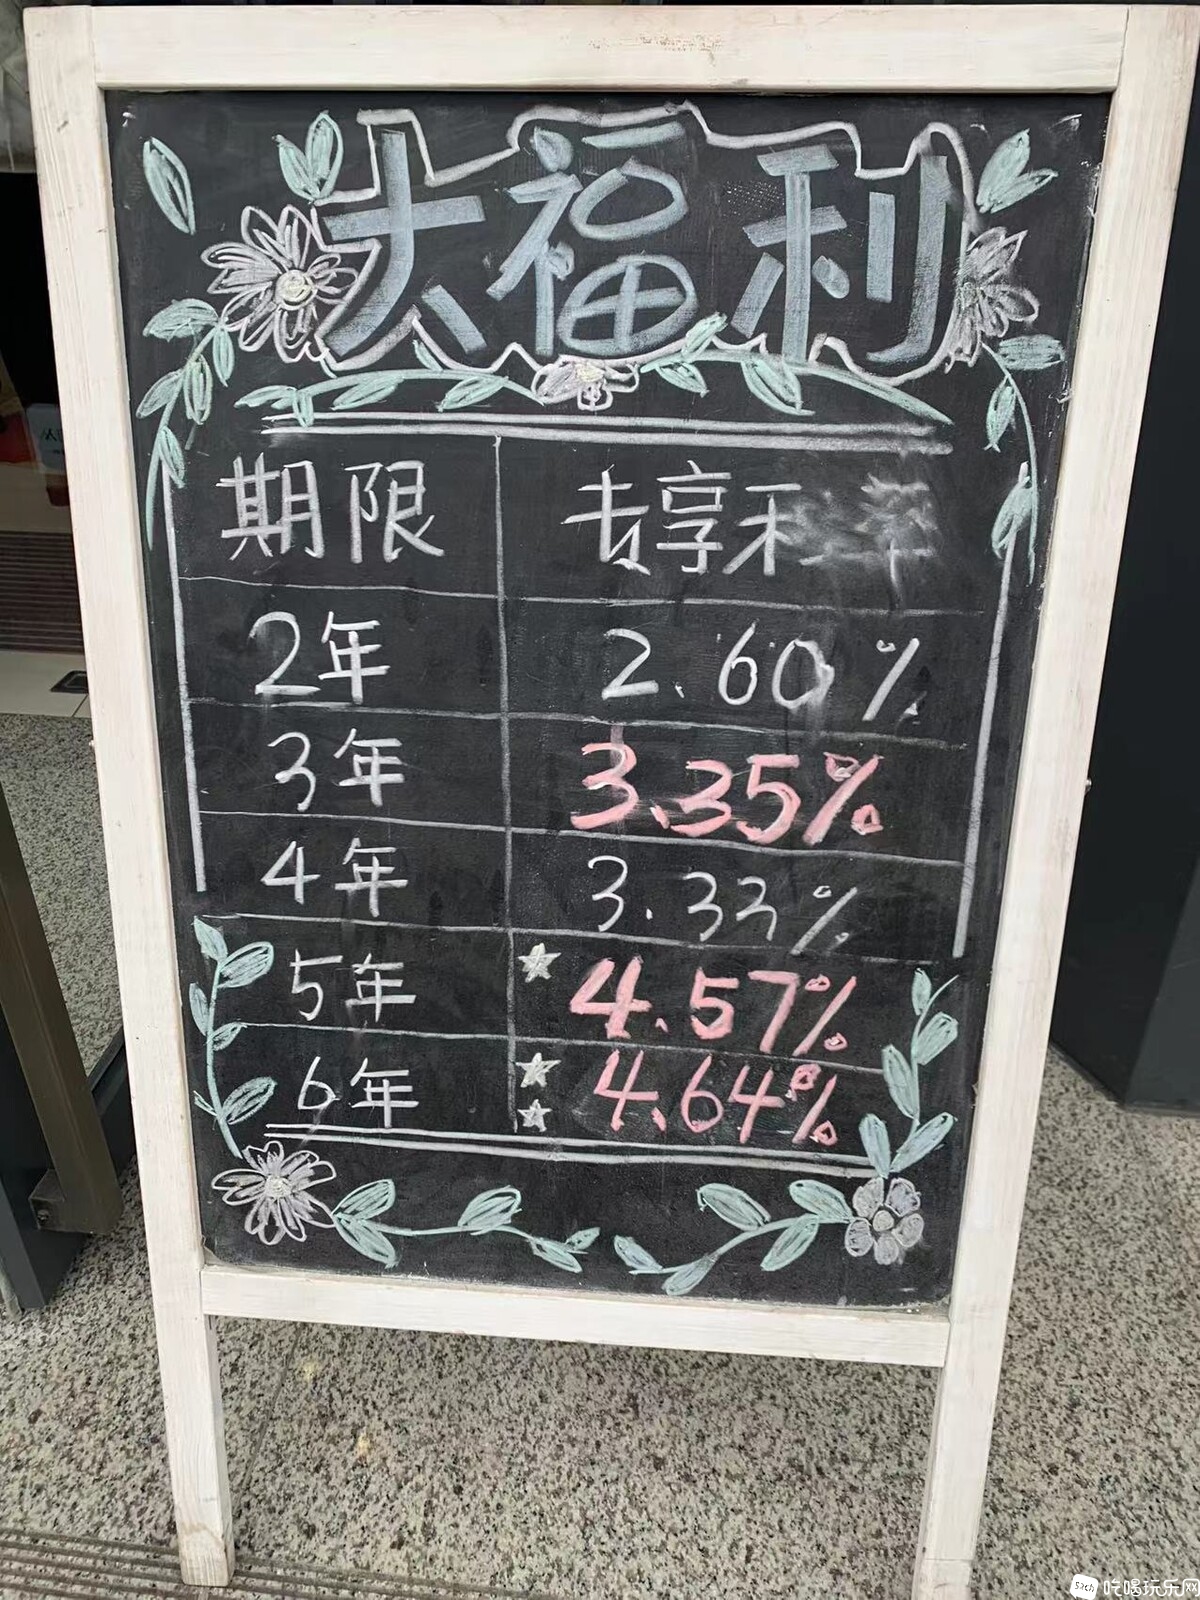 大福利
期限 专享利率
2年 2.60%
3年 3.35%
4年 3.33%
5年 ☆ 4.57%
6年 ☆☆ 4.64%
52ch 吃喝玩乐网